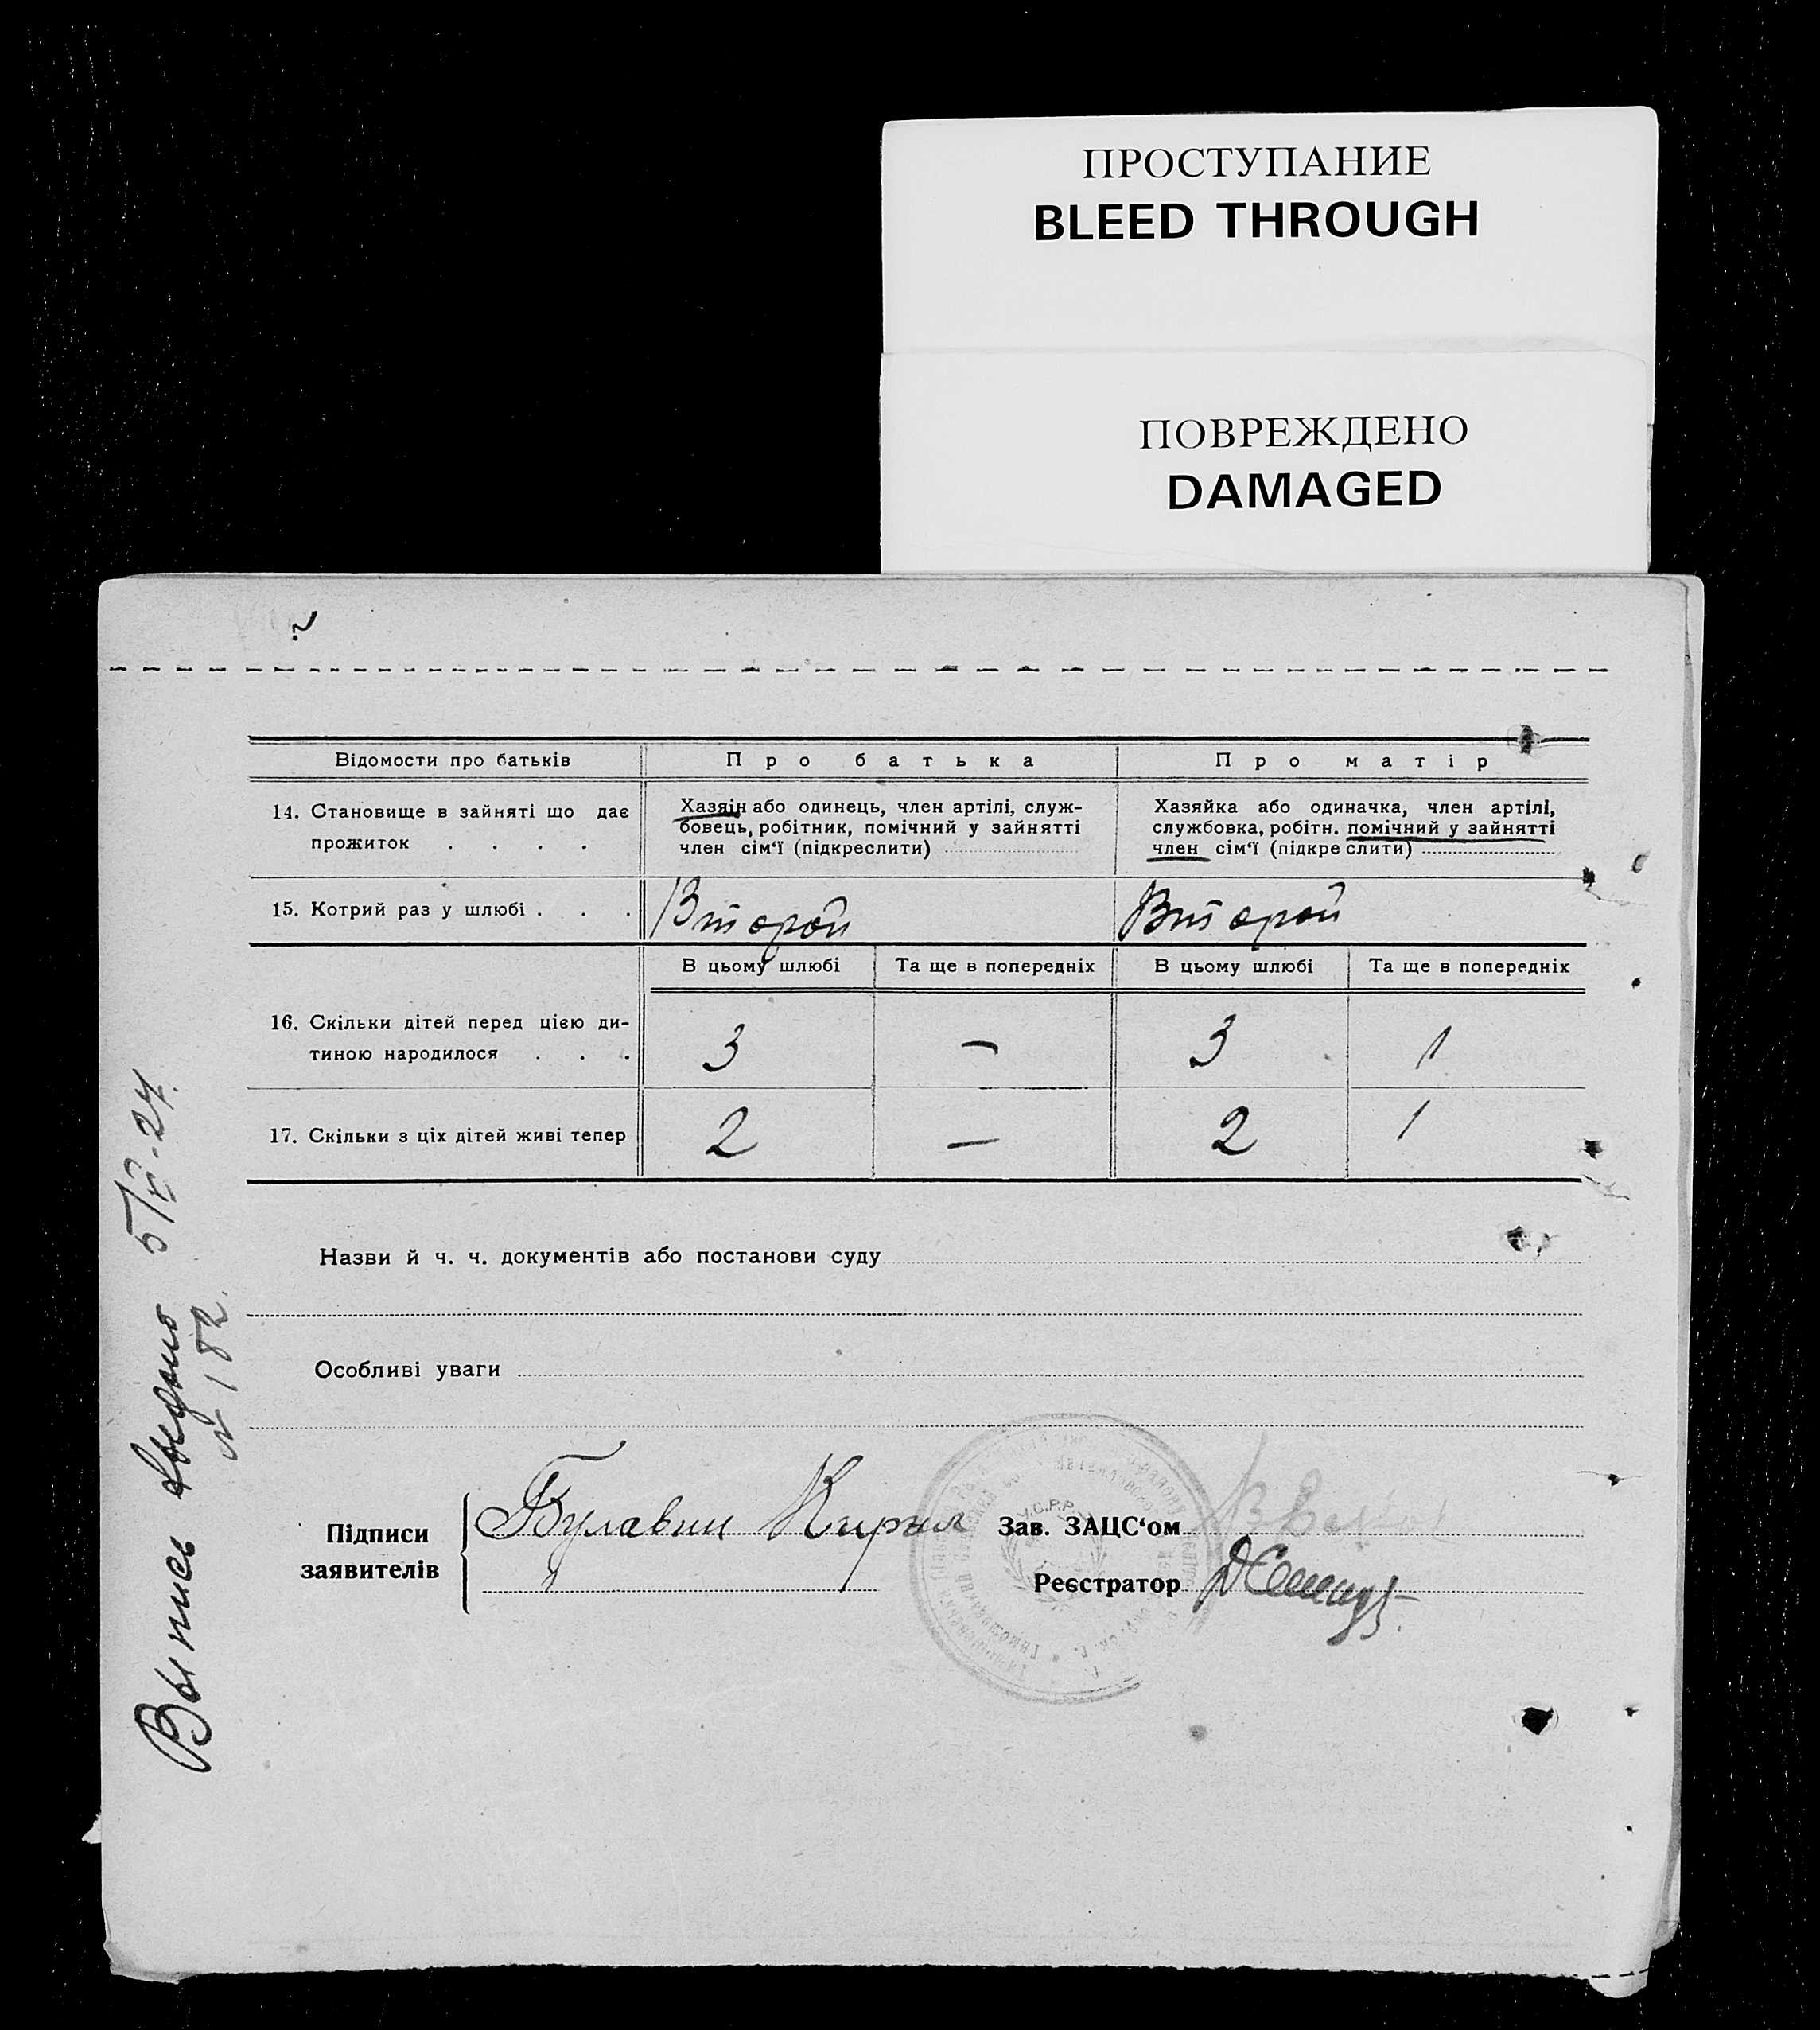 ПРОСТУПАНИЕ
BLEED THROUGH
ПОВРЕЖДЕНО
DAMAGED
Відомости про батьків
Про батька
Про матір
14. Становище в зайняті що дає
прожиток . . . .
Хазяін або одинець, член артілі, служ-
бовець, робітник, помічний у зайнятті
член сім‘ї (підкреслити)
Хазяйка або одиначка, член артілі,
службовка, робітн. помічний у зайнятті
член сім‘ї (підкреслити)
15. Котрий раз у шлюбі . . .
Второй
Второй
В цьому шлюбі
Та ще в попередніх
В цьому шлюбі
Та ще в попередніх
16. Скільки дітей перед цією ди-
тиною народилося . . .
3
—
3
1
17. Скільки з ціх дітей живі тепер
2
—
2
1
Назви й ч. ч. документів або постанови суду
Особливі уваги
Підписи
заявителів
Булавин Кирил
Зав. ЗАЦС‘ом
Реєстратор
У.С.Р.Р.
Выпись выдано
№ 182.